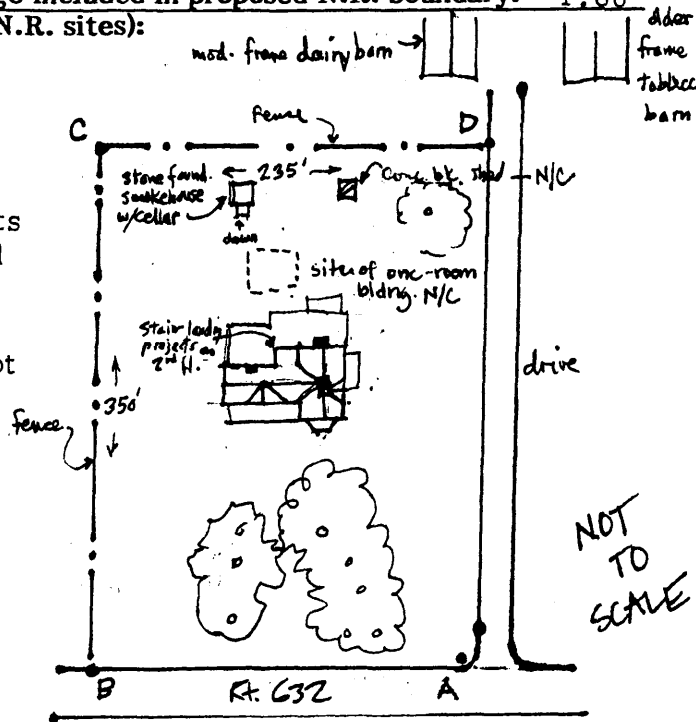 ge included in proposed N.R. boundary: 1.60
N.R. sites):
mod. frame dairy barn
older
frame
tobacco
barn
fence
C
D
235'
stone found.
smokehouse
w/cellar
conc. bk. shed
N/C
down
ts
site of one-room
bldng. N/C
stair landg
projects as
2nd fl.
ot
drive
350'
fence
NOT
TO
SCALE
B
Rt. 632
A